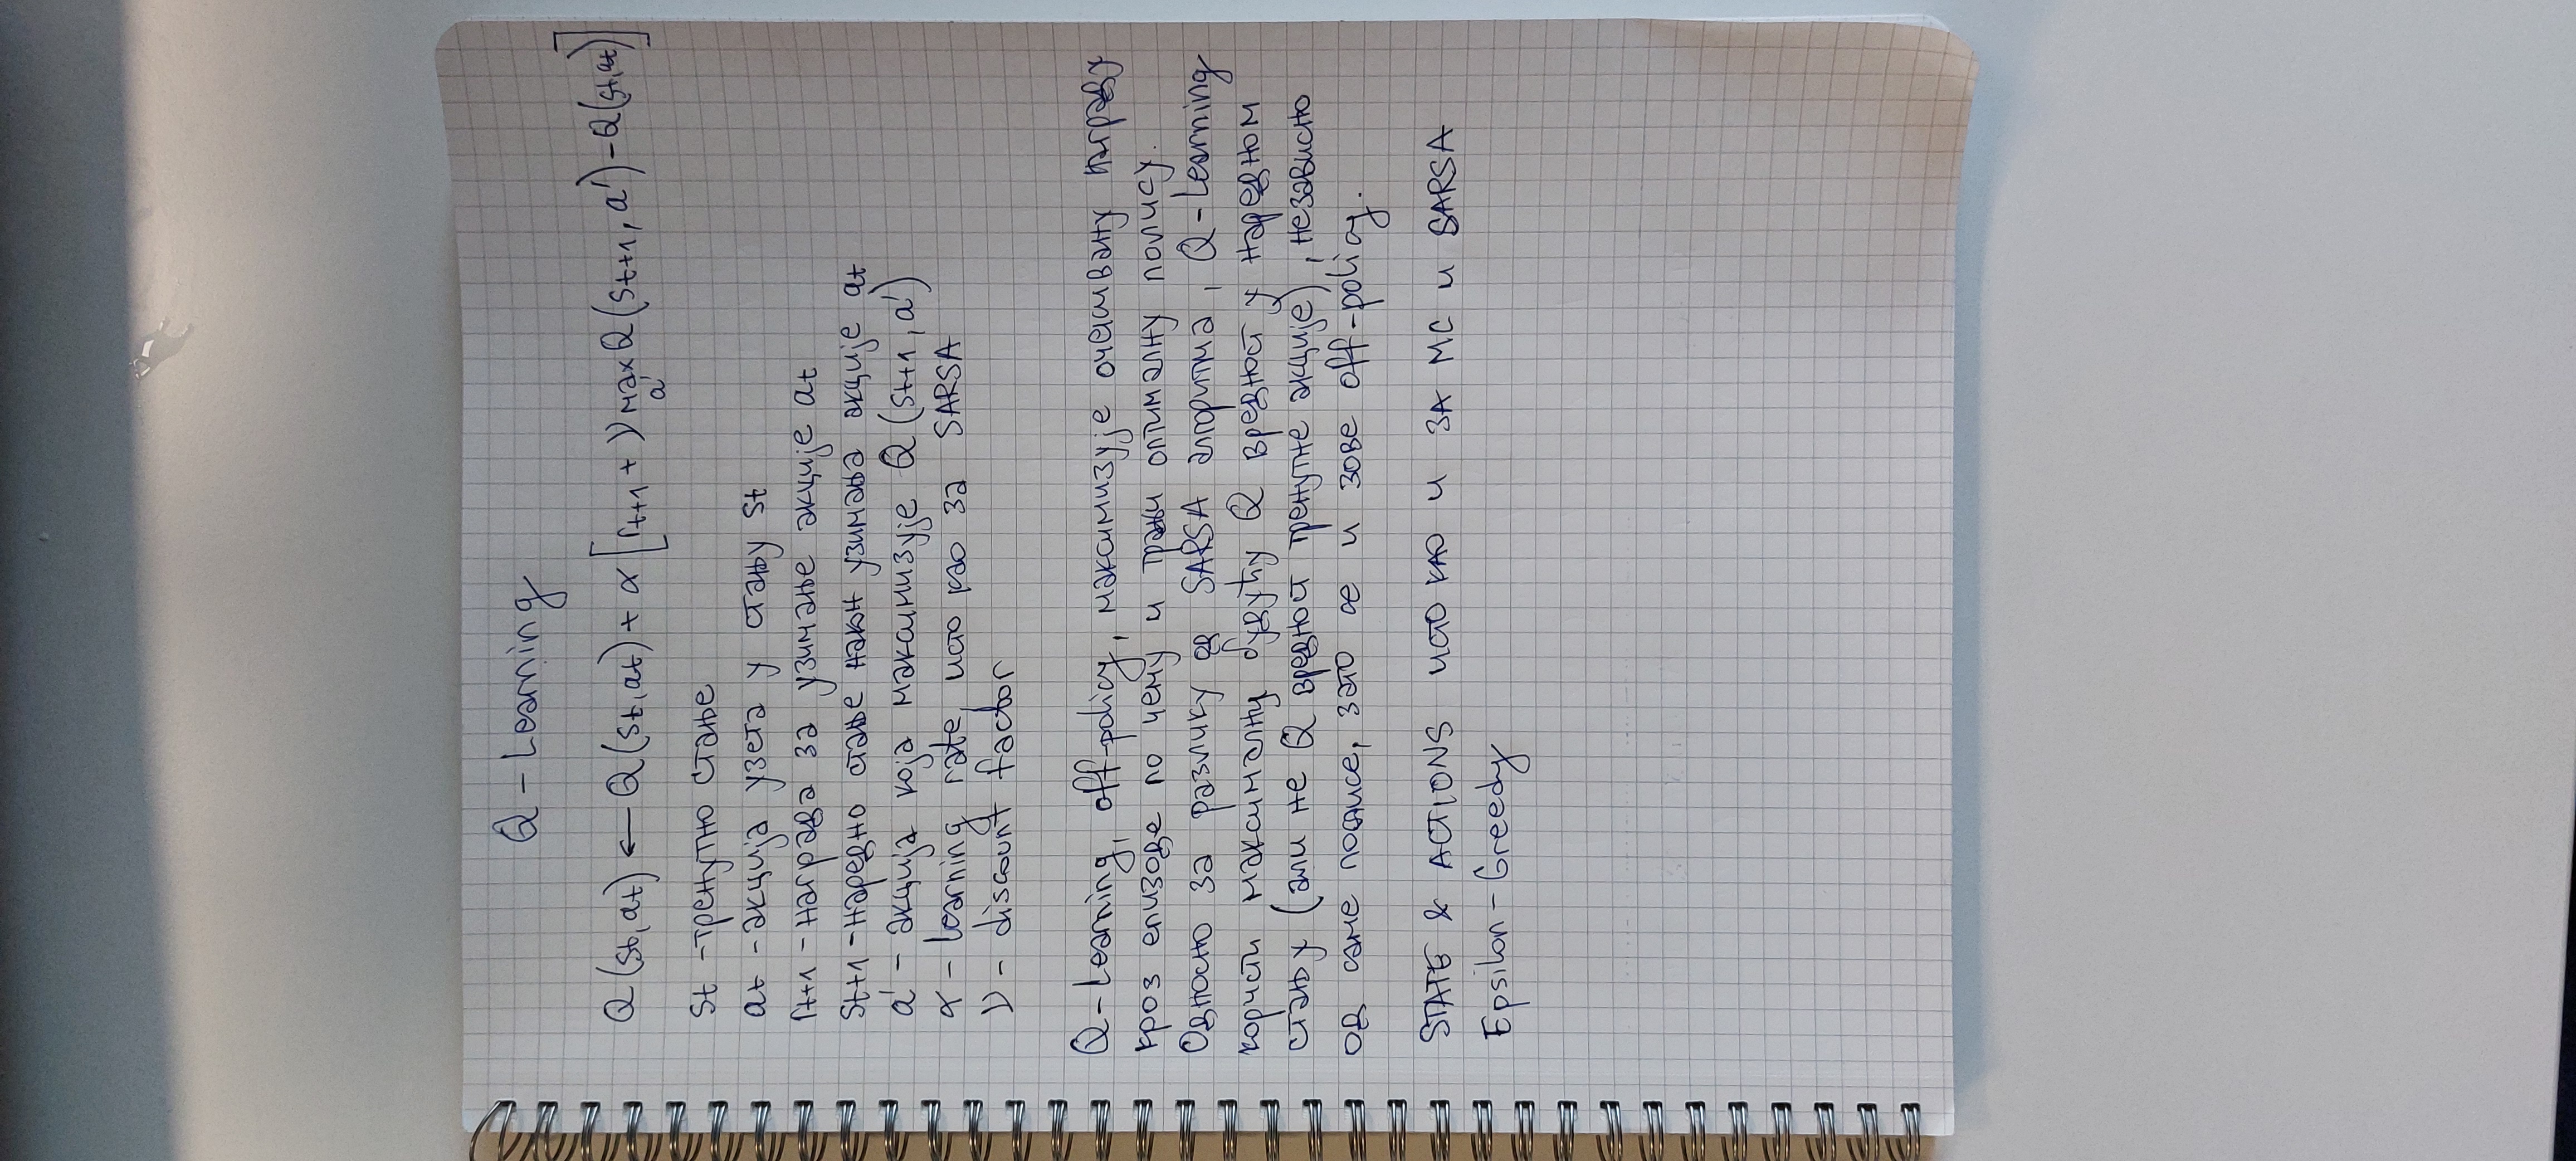 Q-Learning
Q(st, at) ← Q(st, at) + α [rt+1 + γ max Q(st+1, a') - Q(st, at)]
a'
st - тренутно стање
at - акција узета у стању st
rt+1 - награда за узимање акције at
st+1 - наредно стање након узимања акције at
a' - акција која максимизује Q(st+1, a')
α - learning rate, исто као за SARSA
γ - discount factor
Q-Learning, off-policy, максимизује очекивану награду
кроз епизоде по чему и тражи оптималну полису.
Односно за разлику од SARSA алгоритма, Q-Learning
користи максималну будућу Q вредност у наредном
стању (али не Q вредност тренутне акције), независно
од саме полисе, зато се и зове off-policy.
STATE & ACTIONS ИСТО КАО И ЗА МС И SARSA
Epsilon-Greedy